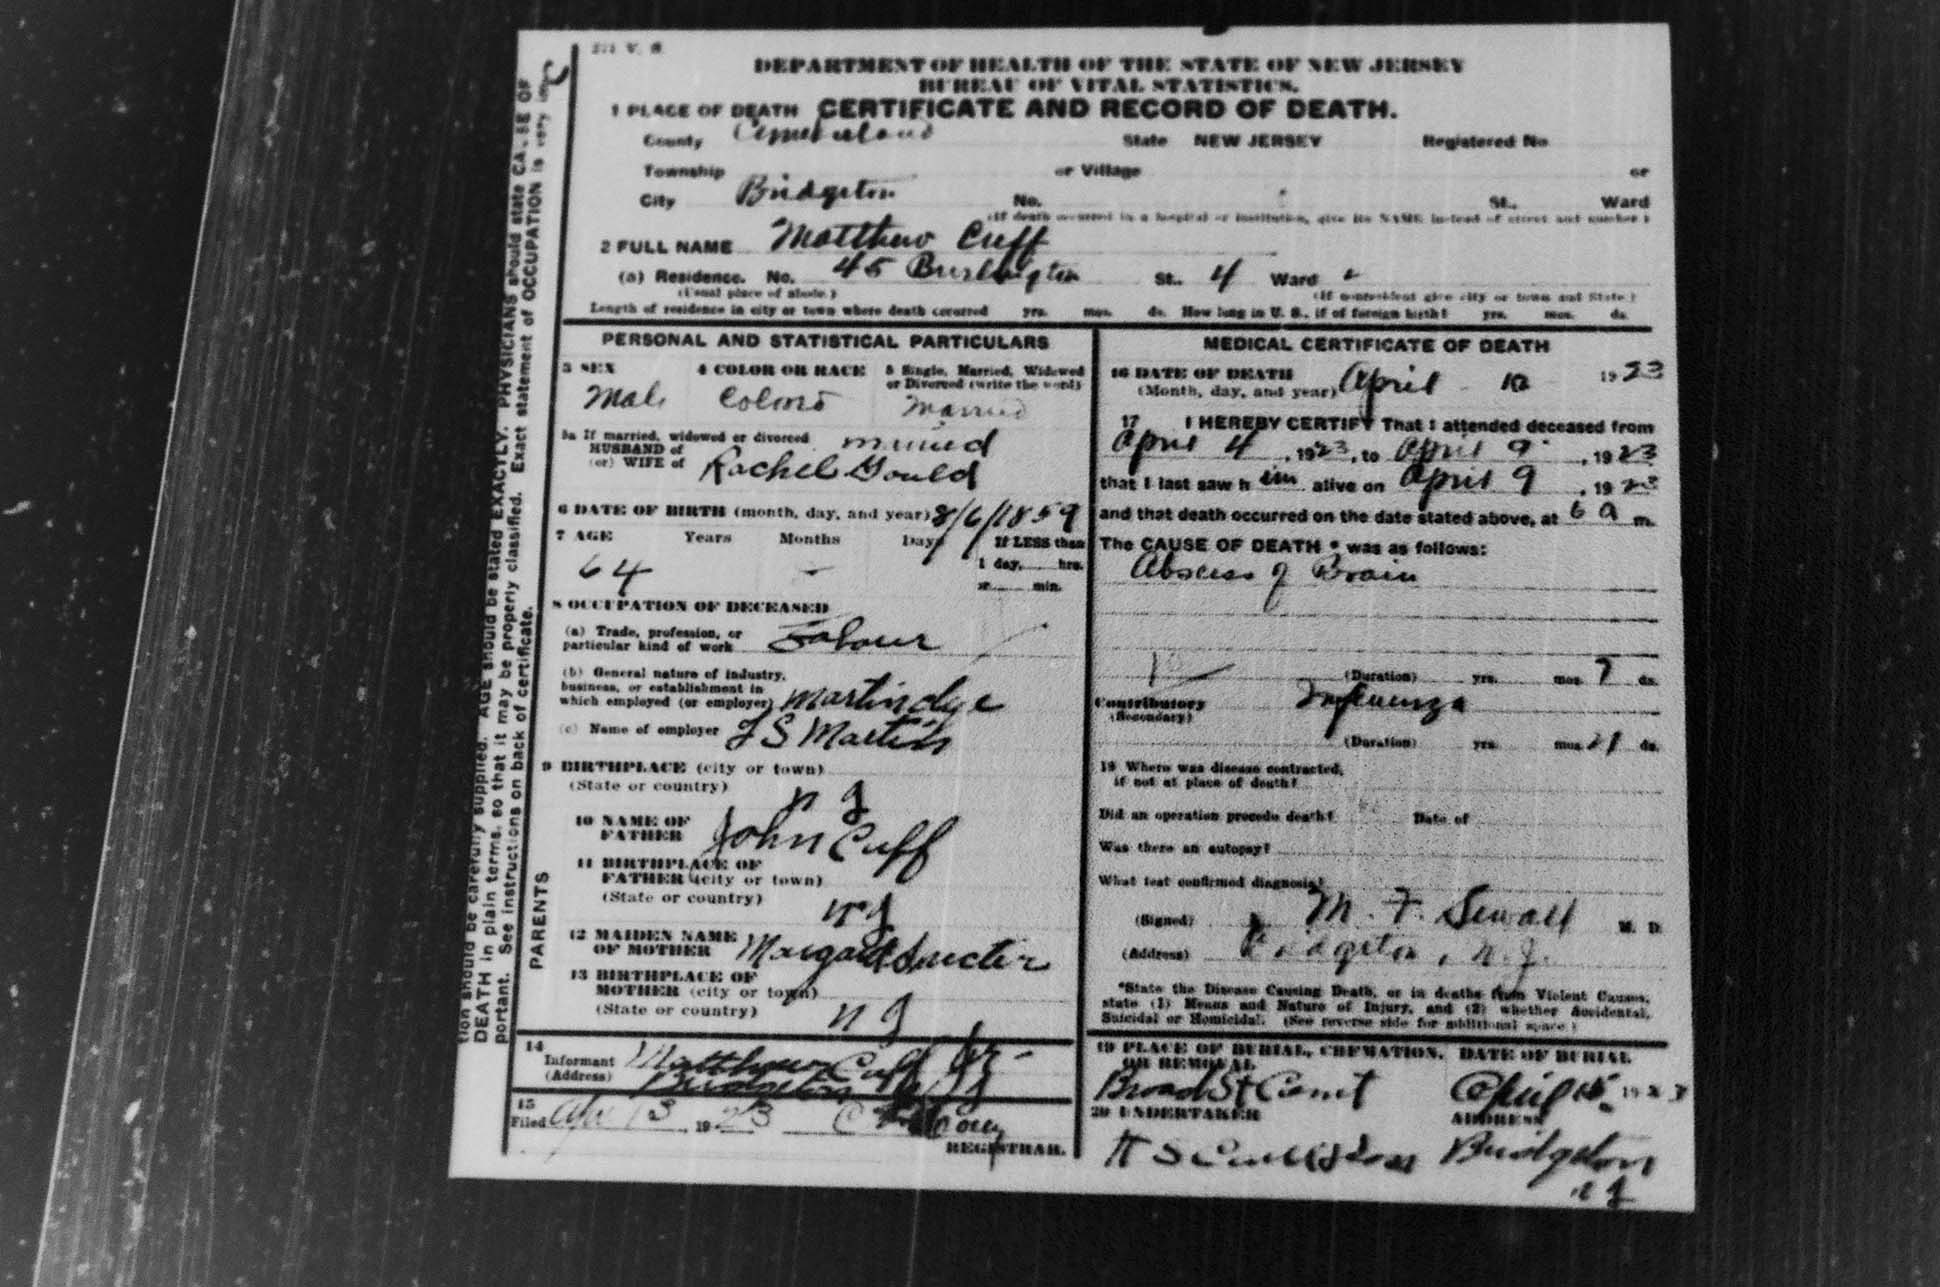 DEPARTMENT OF HEALTH OF THE STATE OF NEW JERSEY
BUREAU OF VITAL STATISTICS.
1 PLACE OF DEATH CERTIFICATE AND RECORD OF DEATH.
County State NEW JERSEY Registered No
Township or Village or
City Bridgeton No. St., Ward
(If death occurred in a hospital or institution, give its NAME instead of street and number)
2 FULL NAME Matthew Cuff
(a) Residence. No. 45 Burlington St. 4 Ward
(Usual place of abode.) (If nonresident give city or town and State)
Length of residence in city or town where death occurred yrs. mos. ds. How long in U. S., if of foreign birth? yrs. mos. ds.
PERSONAL AND STATISTICAL PARTICULARS
3 SEX 4 COLOR OR RACE 5 Single, Married, Widowed
or Divorced (write the word)
Male Colored Married
5a If married, widowed or divorced married
HUSBAND of
(or) WIFE of Rachel Gould
6 DATE OF BIRTH (month, day, and year) 8/6/1859
7 AGE Years Months Days If LESS than
1 day, hrs.
64 or min.
8 OCCUPATION OF DECEASED
(a) Trade, profession, or
particular kind of work Labour
(b) General nature of industry,
business, or establishment in
which employed (or employer) Martin dye
(c) Name of employer Martin
9 BIRTHPLACE (city or town)
(State or country) N J
10 NAME OF
FATHER John Cuff
11 BIRTHPLACE OF
FATHER (city or town)
(State or country) N J
12 MAIDEN NAME
OF MOTHER
13 BIRTHPLACE OF
MOTHER (city or town)
(State or country) N J
PARENTS
14
Informant Matthew Cuff Jr
(Address) Bridgeton N J
15
Filed Apr 13, 1923
REGISTRAR.
MEDICAL CERTIFICATE OF DEATH
16 DATE OF DEATH
(Month, day, and year) April 1923
17 I HEREBY CERTIFY That I attended deceased from
April 4, 1923, to April 9, 1923
that I last saw h im alive on April 9, 1923
and that death occurred on the date stated above, at 6 a m.
The CAUSE OF DEATH * was as follows:
Abscess of Brain
(Duration) yrs. mos. 7 ds.
Contributory Influenza
(Secondary)
(Duration) yrs. mos. 21 ds.
18 Where was disease contracted,
if not at place of death?
Did an operation precede death? Date of
Was there an autopsy?
What test confirmed diagnosis?
(Signed) M. F. Sewall M. D.
(Address) Bridgeton, N. J.
*State the Disease Causing Death, or in deaths from Violent Causes,
state (1) Means and Nature of Injury, and (2) whether Accidental,
Suicidal or Homicidal. (See reverse side for additional space.)
19 PLACE OF BURIAL, CREMATION, DATE OF BURIAL
OR REMOVAL
Broad St Cemt April 15 1923
20 UNDERTAKER ADDRESS
Bridgeton
N J
tion should be carefully supplied. AGE should be stated EXACTLY. PHYSICIANS should state CAUSE OF
DEATH in plain terms, so that it may be properly classified. Exact statement of OCCUPATION is very im
portant. See instructions on back of certificate.